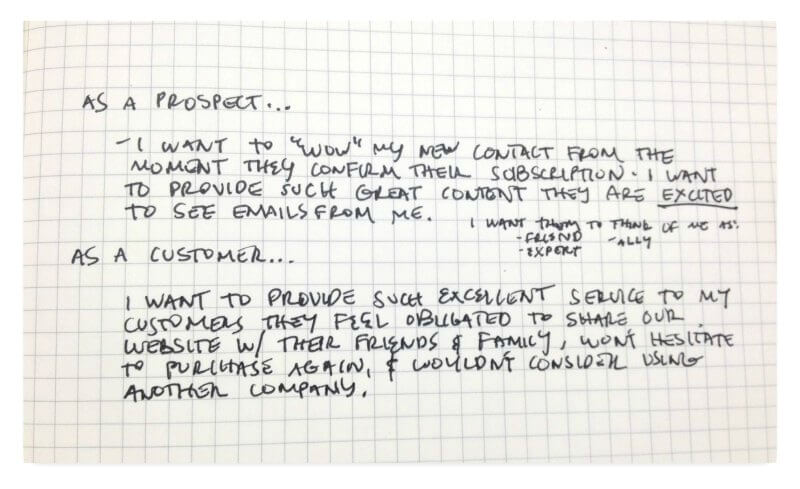 AS A PROSPECT...
- I WANT TO "WOW" MY NEW CONTACT FROM THE
MOMENT THEY CONFIRM THEIR SUBSCRIPTION. I WANT
TO PROVIDE SUCH GREAT CONTENT THEY ARE EXCITED
TO SEE EMAILS FROM ME.
I WANT THEM TO THINK OF ME AS:
- FRIEND - ALLY
- EXPERT
AS A CUSTOMER...
I WANT TO PROVIDE SUCH EXCELLENT SERVICE TO MY
CUSTOMERS THEY FEEL OBLIGATED TO SHARE OUR
WEBSITE W/ THEIR FRIENDS & FAMILY, WON'T HESITATE
TO PURCHASE AGAIN, & WOULDN'T CONSIDER USING
ANOTHER COMPANY.